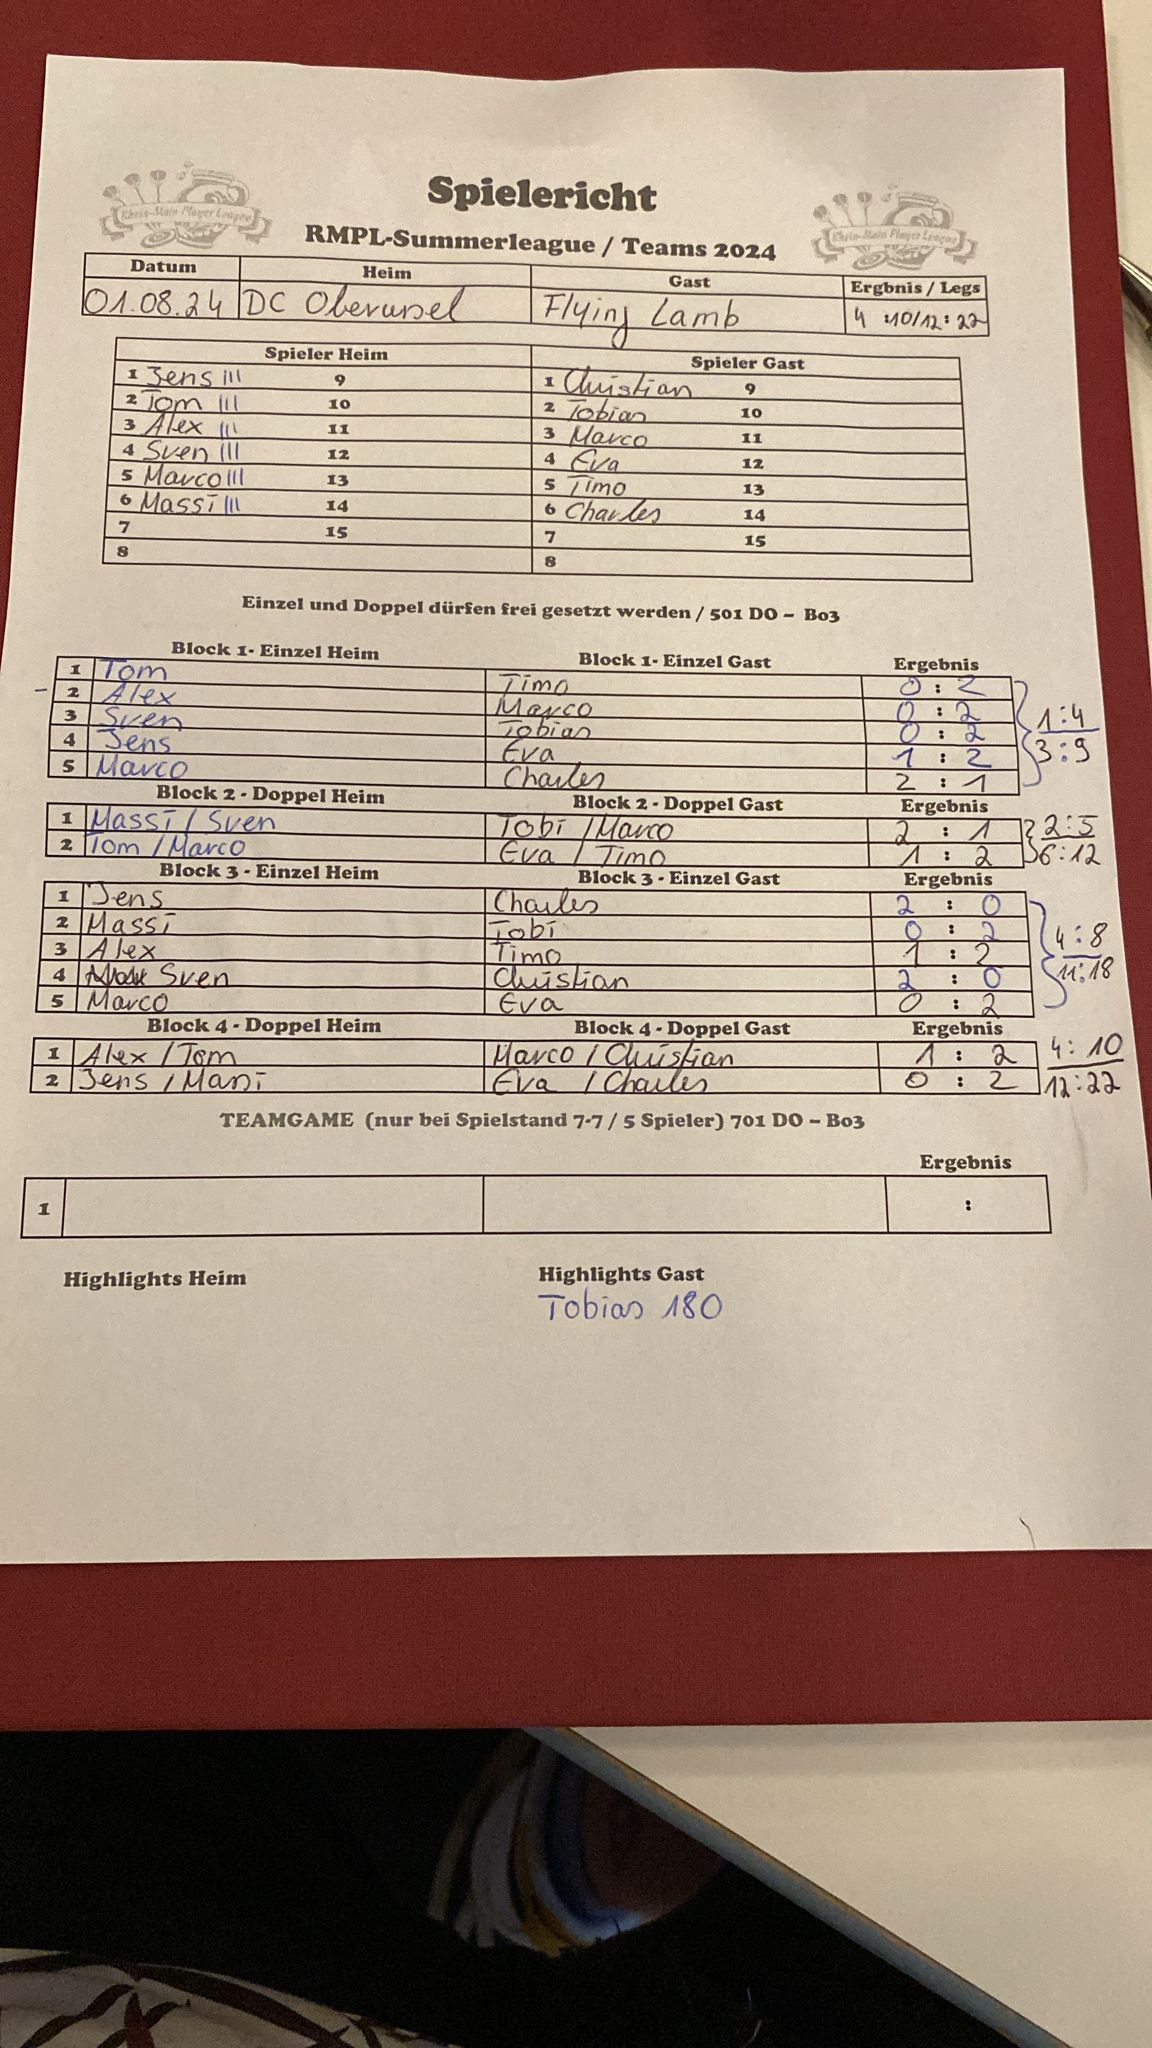 Rhein-Main Player League
Rhein-Main Player League
Spielericht
RMPL-Summerleague / Teams 2024
Datum Heim Gast Ergbnis / Legs
01.08.24 DC Oberursel Flying Lamb 4 :10/12:22
Spieler Heim Spieler Gast
1 Jens III 9 1 Christian 9
2 Tom III 10 2 Tobias 10
3 Alex III 11 3 Marco 11
4 Sven III 12 4 Eva 12
5 Marco III 13 5 Timo 13
6 Massi III 14 6 Charles 14
7 15 7 15
8 8
Einzel und Doppel dürfen frei gesetzt werden / 501 DO – Bo3
Block 1- Einzel Heim Block 1- Einzel Gast Ergebnis
1 Tom Timo 0 : 2
2 Alex Marco 0 : 2
3 Sven Tobias 0 : 2
4 Jens Eva 1 : 2
5 Marco Charles 2 : 1
1:4
3:9
Block 2 - Doppel Heim Block 2 - Doppel Gast Ergebnis
1 Massi / Sven Tobi / Marco 2 : 1
2 Tom / Marco Eva / Timo 1 : 2
2:5
6:12
Block 3 - Einzel Heim Block 3 - Einzel Gast Ergebnis
1 Jens Charles 2 : 0
2 Massi Tobi 0 : 2
3 Alex Timo 1 : 2
4 Sven Christian 2 : 0
5 Marco Eva 0 : 2
4:8
11:18
Block 4 - Doppel Heim Block 4 - Doppel Gast Ergebnis
1 Alex / Tom Marco / Christian 1 : 2
2 Jens / Massi Eva / Charles 0 : 2
4:10
12:22
TEAMGAME (nur bei Spielstand 7-7 / 5 Spieler) 701 DO – Bo3
Ergebnis
1 :
Highlights Heim Highlights Gast
Tobias 180